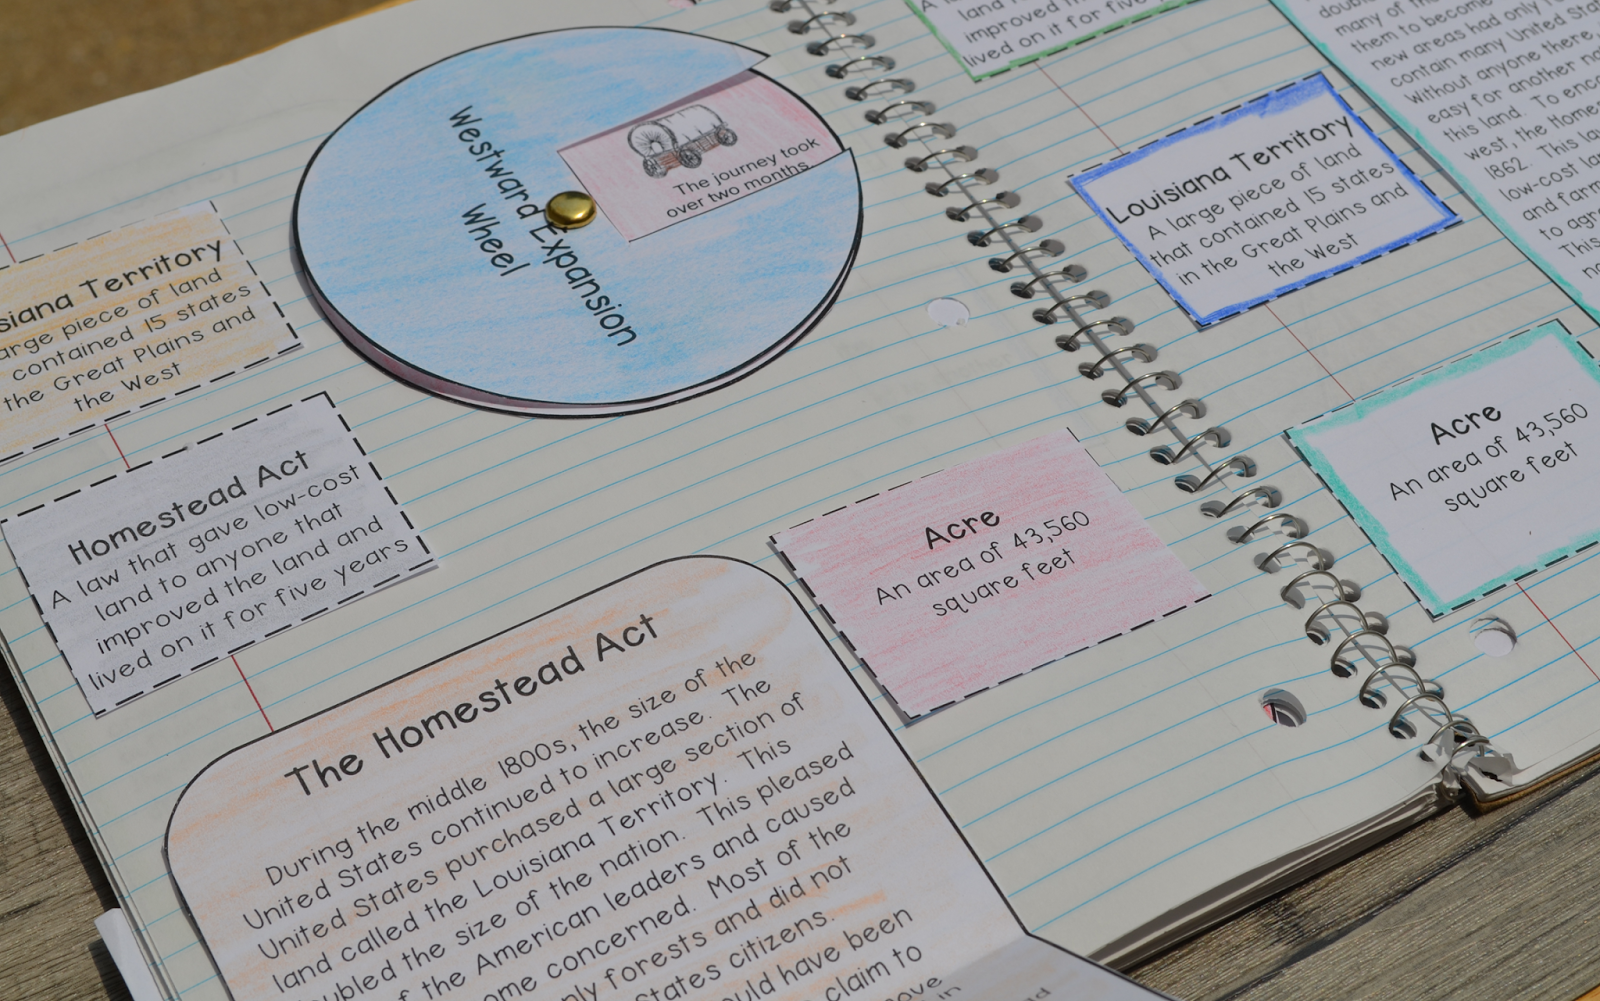 Westward Expansion
Wheel
The journey took
over two months.
Territory
piece of land
contained 15 states
the Great Plains and
the West
Homestead Act
A law that gave low-cost
land to anyone that
improved the land and
lived on it for five years
The Homestead Act
During the middle 1800s, the size of the
United States continued to increase. The
United States purchased a large section of
land called the Louisiana Territory. This
the size of the nation. This pleased
of the American leaders and caused
concerned. Most of the
forests and did not
citizens.
have been
claim to
in
Acre
An area of 43,560
square feet
land
improved
lived on it for five
Louisiana Territory
A large piece of land
that contained 15 states
in the Great Plains and
the West
Acre
An area of 43,560
square feet
many of
them to become
new areas had only
contain many United
Without anyone there,
for another
easy
this land. To
west, the
1862. This
low-cost
and
to
This